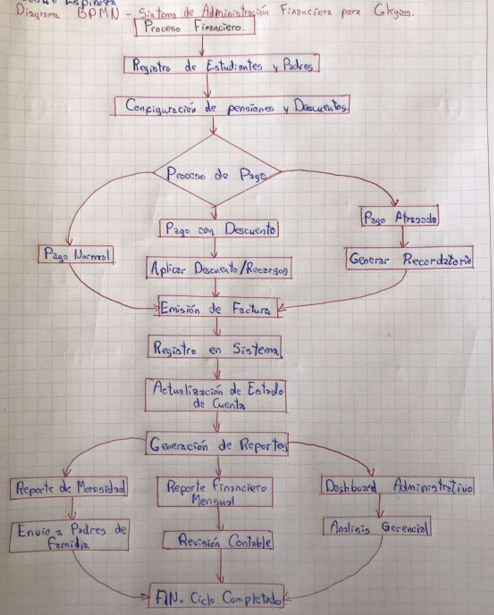 Espinoza
Diagrama BPMN - Sistema de Administración Financiera para Colegios.
Proceso Financiero.
Registro de Estudiantes y Padres
Configuración de pensiones y Descuentos.
Proceso de Pago
Pago Normal
Pago con Descuento
Pago Atrasado
Aplicar Descuento/Recargos
Generar Recordatorio
Emisión de Factura
Registro en Sistema
Actualización de Estado
de Cuenta
Generación de Reportes
Reporte de Morosidad
Reporte Financiero
Mensual
Dashboard Administrativo
Envío a Padres de
Familia
Revisión Contable
Analisis Gerencial
FIN. Ciclo Completado